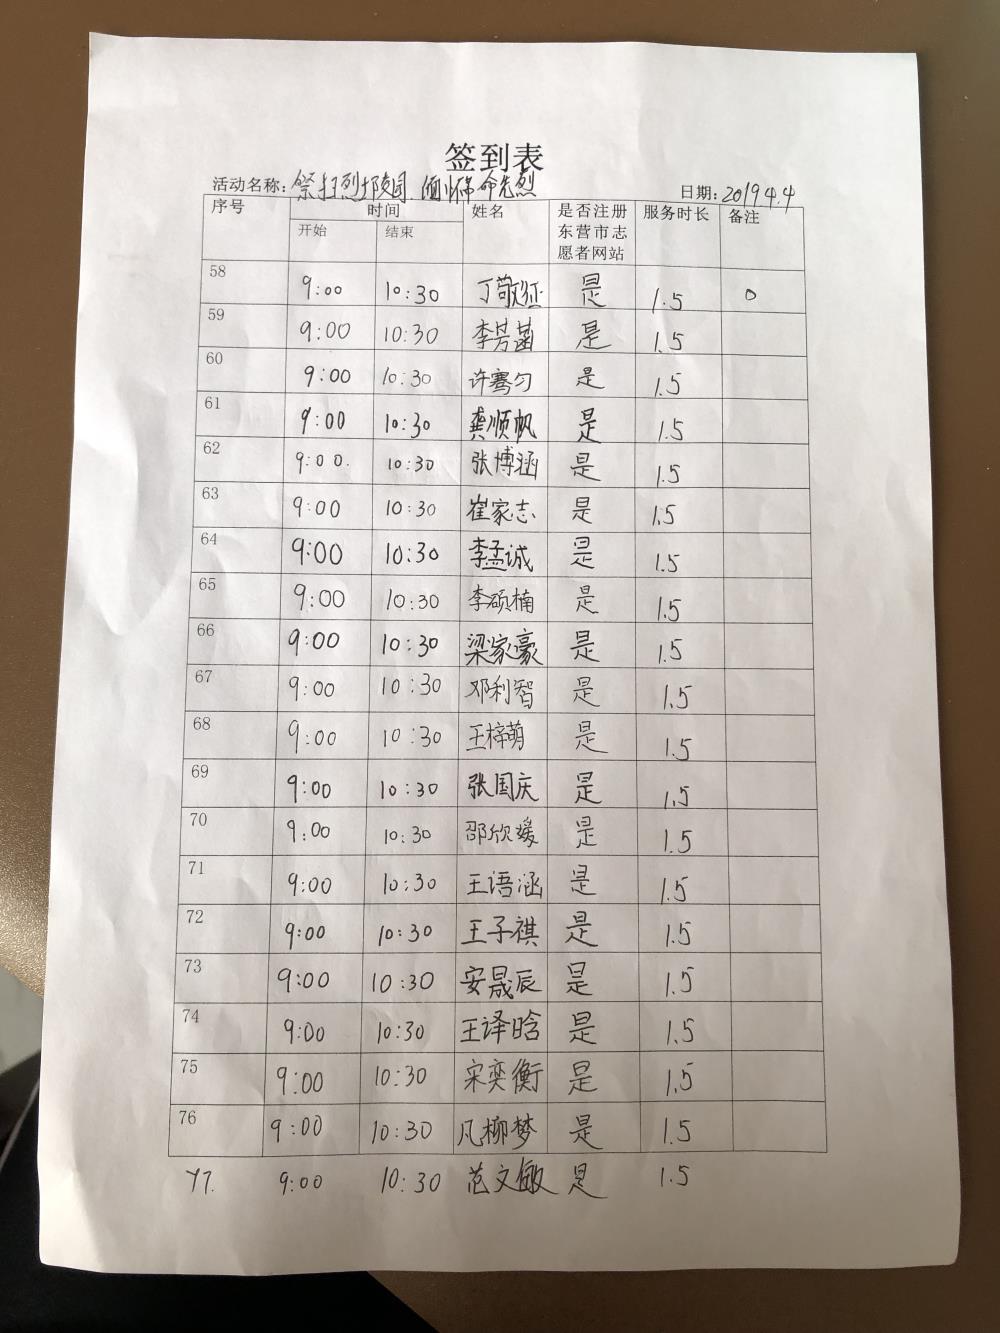 签到表
活动名称：祭扫烈士陵园，缅怀革命先烈 日期：2019.4.4
序号 时间 姓名 是否注册东营市志愿者网站 服务时长 备注
开始 结束
58 9:00 10:30 丁敬征 是 1.5 0
59 9:00 10:30 李芳菡 是 1.5
60 9:00 10:30 许骞匀 是 1.5
61 9:00 10:30 龚顺帆 是 1.5
62 9:00. 10:30 张博涵 是 1.5
63 9:00 10:30 崔家志 是 1.5
64 9:00 10:30 李孟诚 是 1.5
65 9:00 10:30 李硕楠 是 1.5
66 9:00 10:30 梁家豪 是 1.5
67 9:00 10:30 邓利智 是 1.5
68 9:00 10:30 王梓萌 是 1.5
69 9:00 10:30 张国庆 是 1.5
70 9:00 10:30 邵欣媛 是 1.5
71 9:00 10:30 王语涵 是 1.5
72 9:00 10:30 王子祺 是 1.5
73 9:00 10:30 安晟辰 是 1.5
74 9:00 10:30 王译晗 是 1.5
75 9:00 10:30 宋奕衡 是 1.5
76 9:00 10:30 凡柳梦 是 1.5
77. 9:00 10:30 范文敏 是 1.5